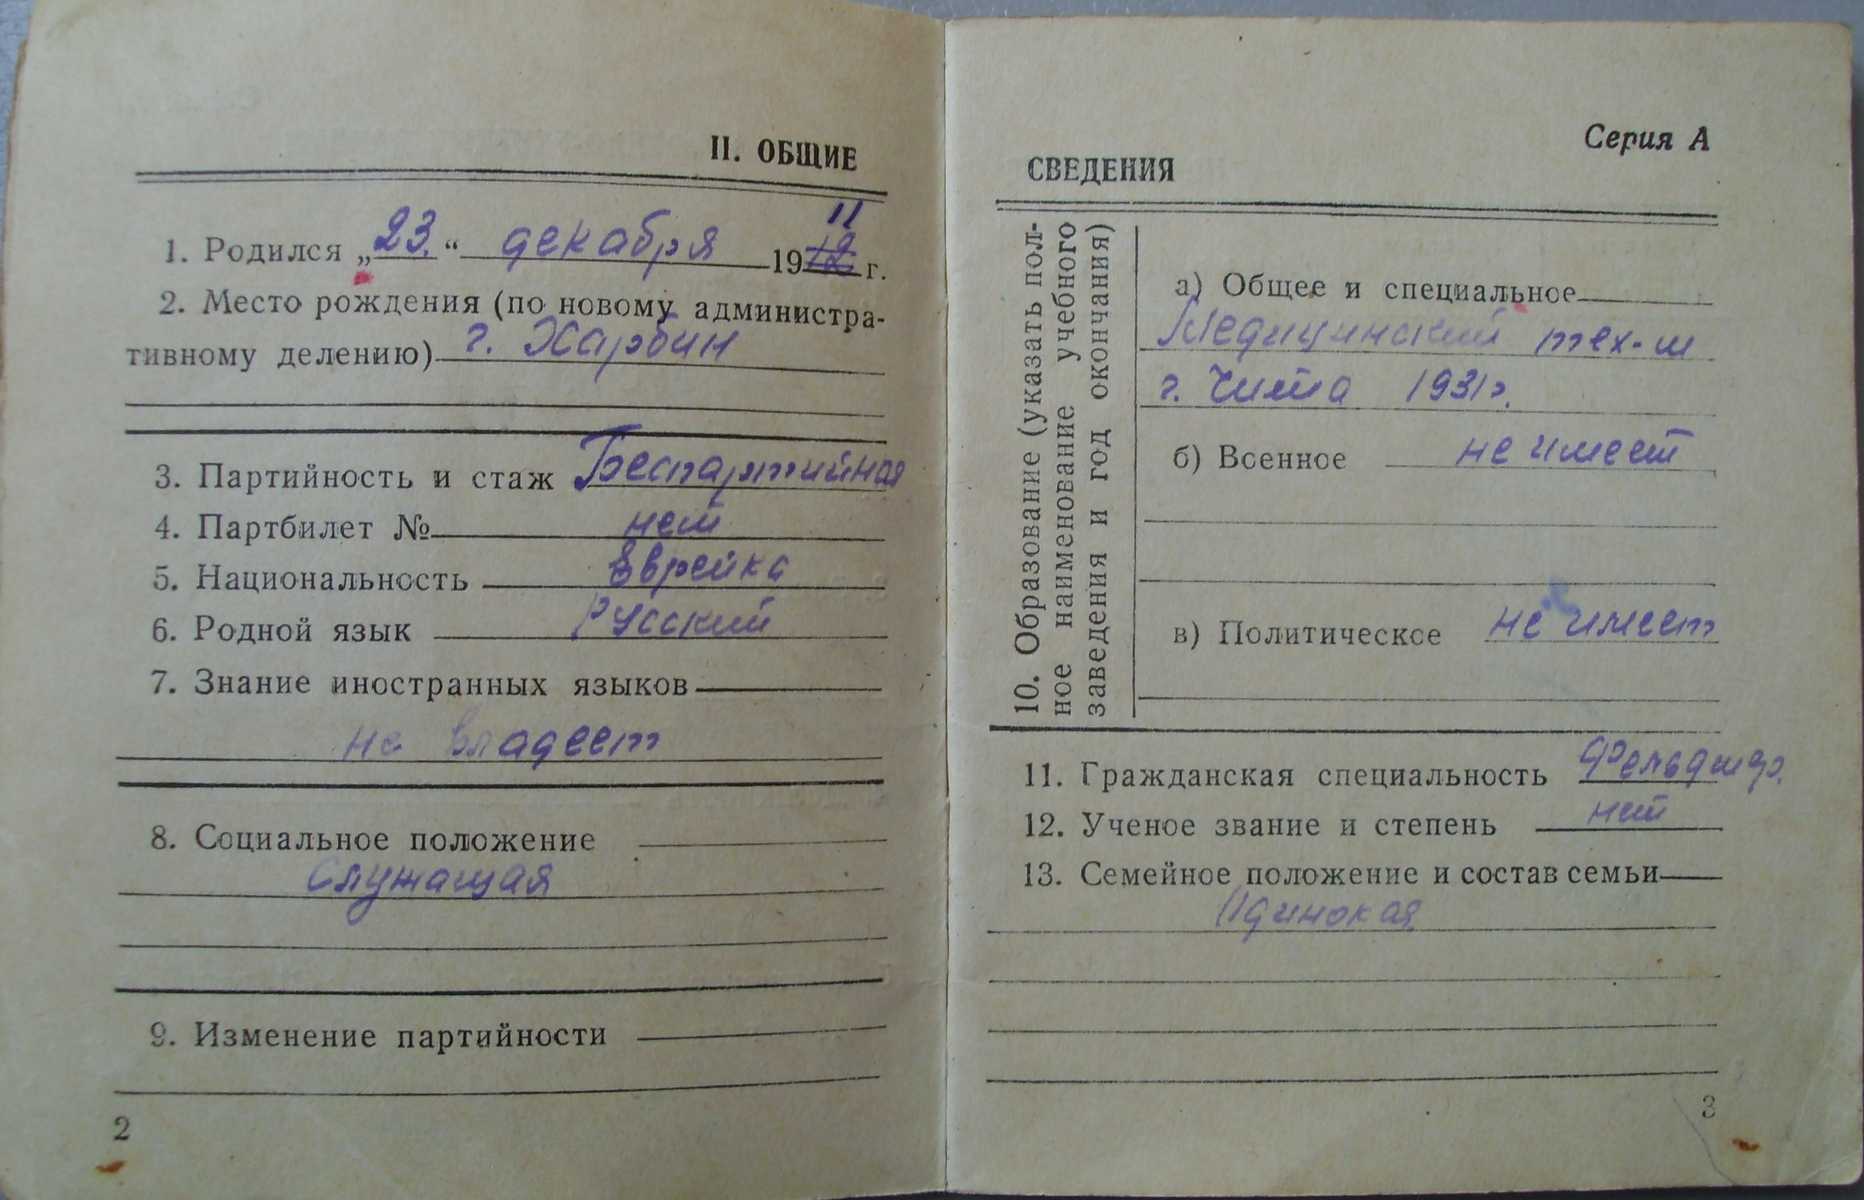 II. ОБЩИЕ
1. Родился „23.“ декабря 1912 г.
11
2. Место рождения (по новому администра-
тивному делению) г. Харбин
3. Партийность и стаж Беспартийная
4. Партбилет № нет
5. Национальность Еврейка
6. Родной язык Русский
7. Знание иностранных языков
не владеет
8. Социальное положение
Служащая
9. Изменение партийности
2
Серия А
СВЕДЕНИЯ
10. Образование (указать пол-
ное наименование учебного
заведения и год окончания)
а) Общее и специальное
Медицинский тех-м
г. Чита 1931г.
б) Военное не имеет
в) Политическое не имеет
11. Гражданская специальность Фельдшер.
12. Ученое звание и степень нет
13. Семейное положение и состав семьи
Одинокая
3